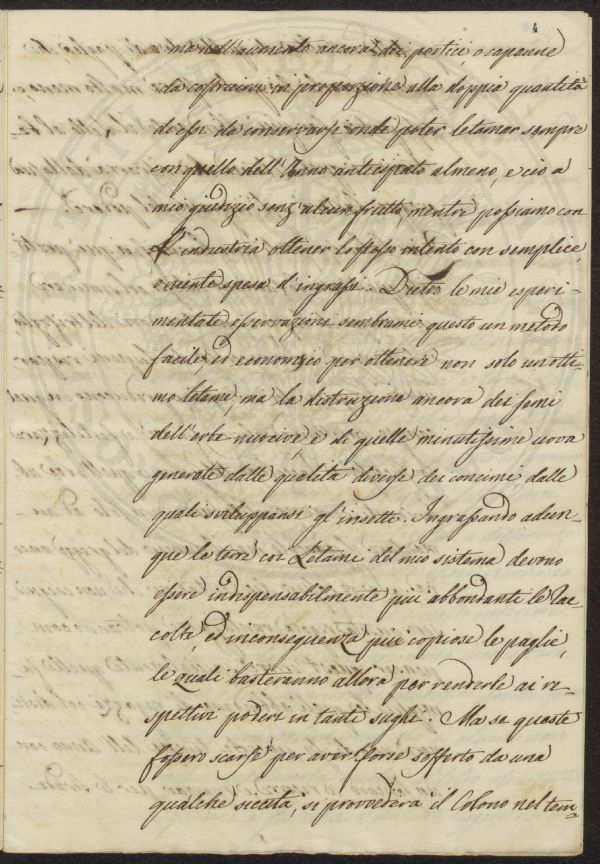 4
ma nell'aumento ancora dei portici, o capanne
da costruirsi in proporzione alla doppia quantità
di essi da conservarsi onde poter letamar sempre
con quello dell'Anno anticipato almeno, e ciò a
mio giudizio senz'alcun frutto, mentre possiamo con
l'industria ottener lo stesso intento con semplice,
o niente spesa d'ingrassi. Dietro le mie esperi-
mentate osservazioni sembrami questo un metodo
facile, ed economico per ottenere non solo un otti-
mo letame, ma la distruzione ancora dei semi
dell'erbe nuocive, e di quelle minutissime uova
generate dalle qualità diverse dei concimi, dalle
quali sviluppansi gl'insetti. Ingrassando adun-
que le terre coi Letami del mio sistema devono
essere indispensabilmente più abbondanti le rac-
colte, ed in conseguenza più copiose le paglie,
le quali basteranno allora per renderle ai ri-
spettivi poderi in tanti sughi. Ma se queste
fossero scarse per aver forse sofferto da una
qualche siccità, si provvederà il Colono nel tem-